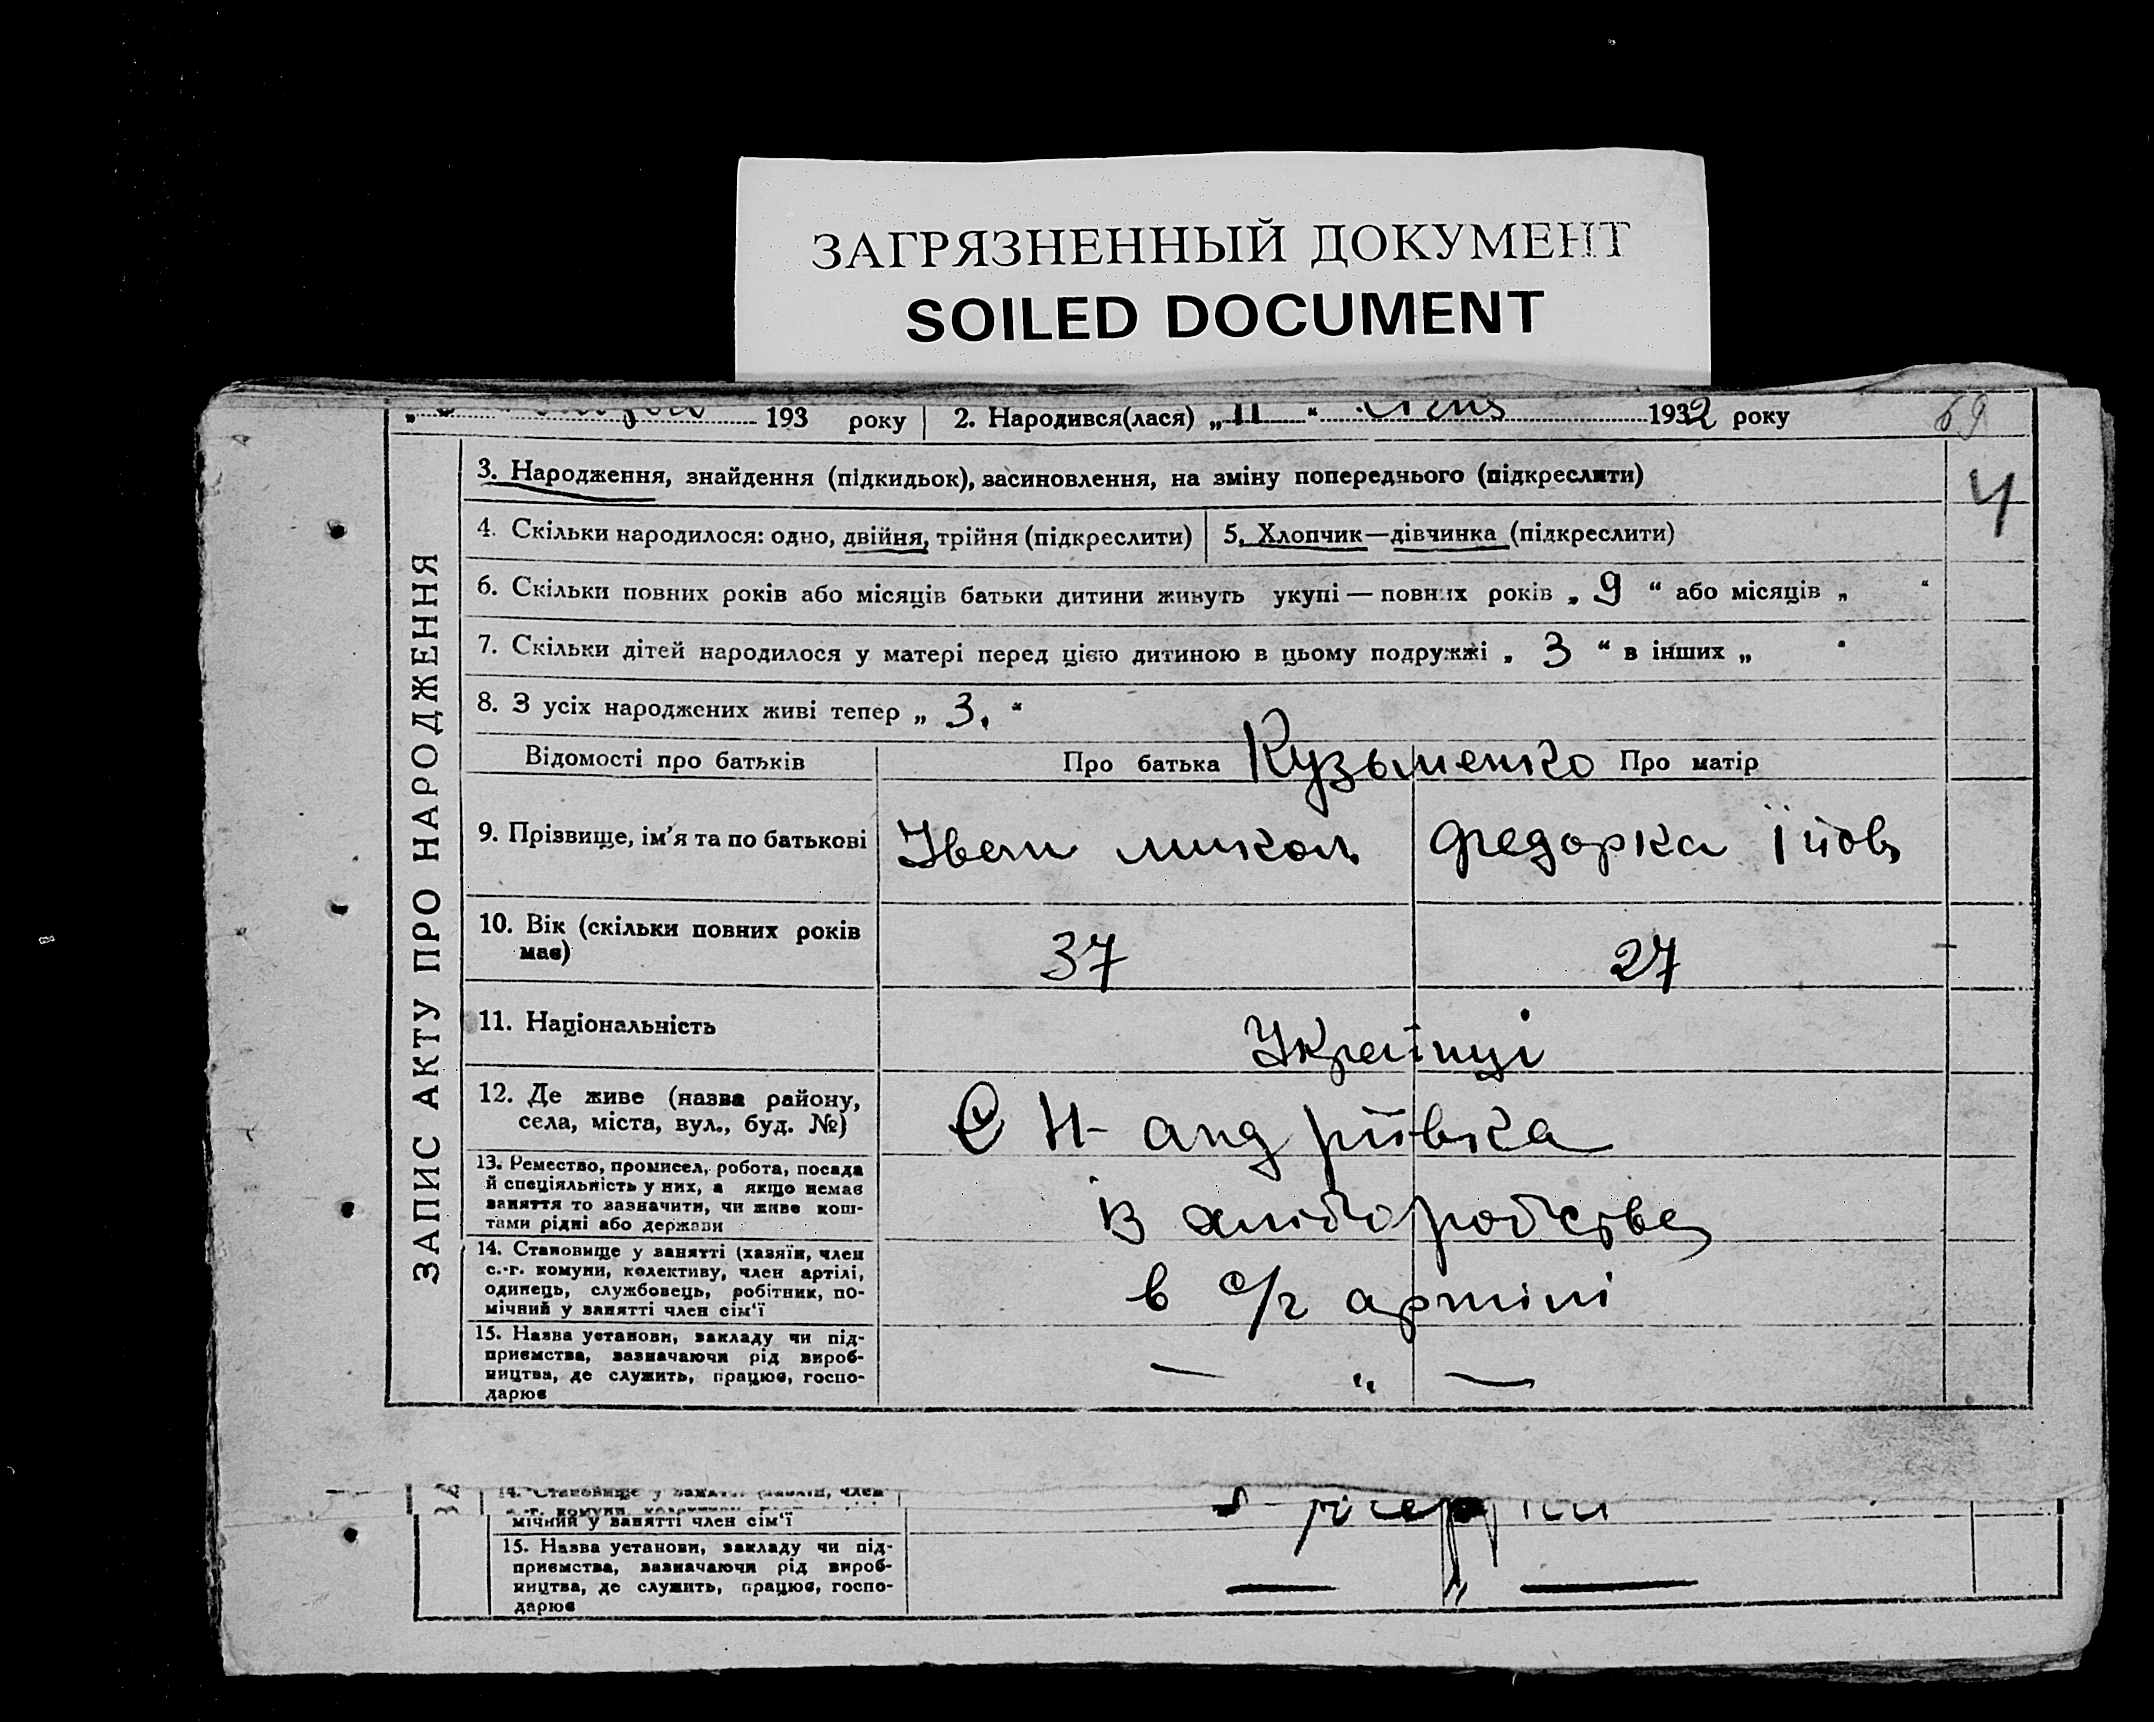 ЗАГРЯЗНЕННЫЙ ДОКУМЕНТ
SOILED DOCUMENT
193 року 2. Народився(лася) „ 11 “ 1932 року
69
3. Народження, знайдення (підкидьок), засиновлення, на зміну попереднього (підкреслити)
4
4. Скільки народилося: одно, двійня, трійня (підкреслити) 5. Хлопчик—дівчинка (підкреслити)
6. Скільки повних років або місяців батьки дитини живуть укупі — повних років „ 9 “ або місяців „ “
7. Скільки дітей народилося у матері перед цією дитиною в цьому подружжі „ 3 “ в інших „ “
8. З усіх народжених живі тепер „ 3. “
Відомості про батьків Про батька Кузьменко Про матір
9. Прізвище, ім’я та по батькові Іван микол Федорка
10. Вік (скільки повних років має) 37 27
11. Національність Українці
12. Де живе (назва району, села, міста, вул., буд. №) С Н-андріївка
13. Ремество, промисел, робота, посада
й спеціяльність у них, а якщо немає
заняття то зазначити, чи живе кош-
тами рідні або держави
В хліборобстве
14. Становище у занятті (хазяїн, член
с.-г. комуни, колективу, член артілі,
одинець, службовець, робітник, по-
мічний у занятті член сім’ї
в с/г артілі
15. Назва установи, закладу чи під-
приємства, зазначаючи рід вироб-
ництва, де служить, працює, госпо-
дарює
— „ —
ЗАПИС АКТУ ПРО НАРОДЖЕННЯ
14. Становище у занятті (хазяїн, член
мічний у занятті член сім’ї
15. Назва установи, закладу чи під-
приємства, зазначаючи рід вироб-
ництва, де служить, працює, госпо-
дарює
— „ —